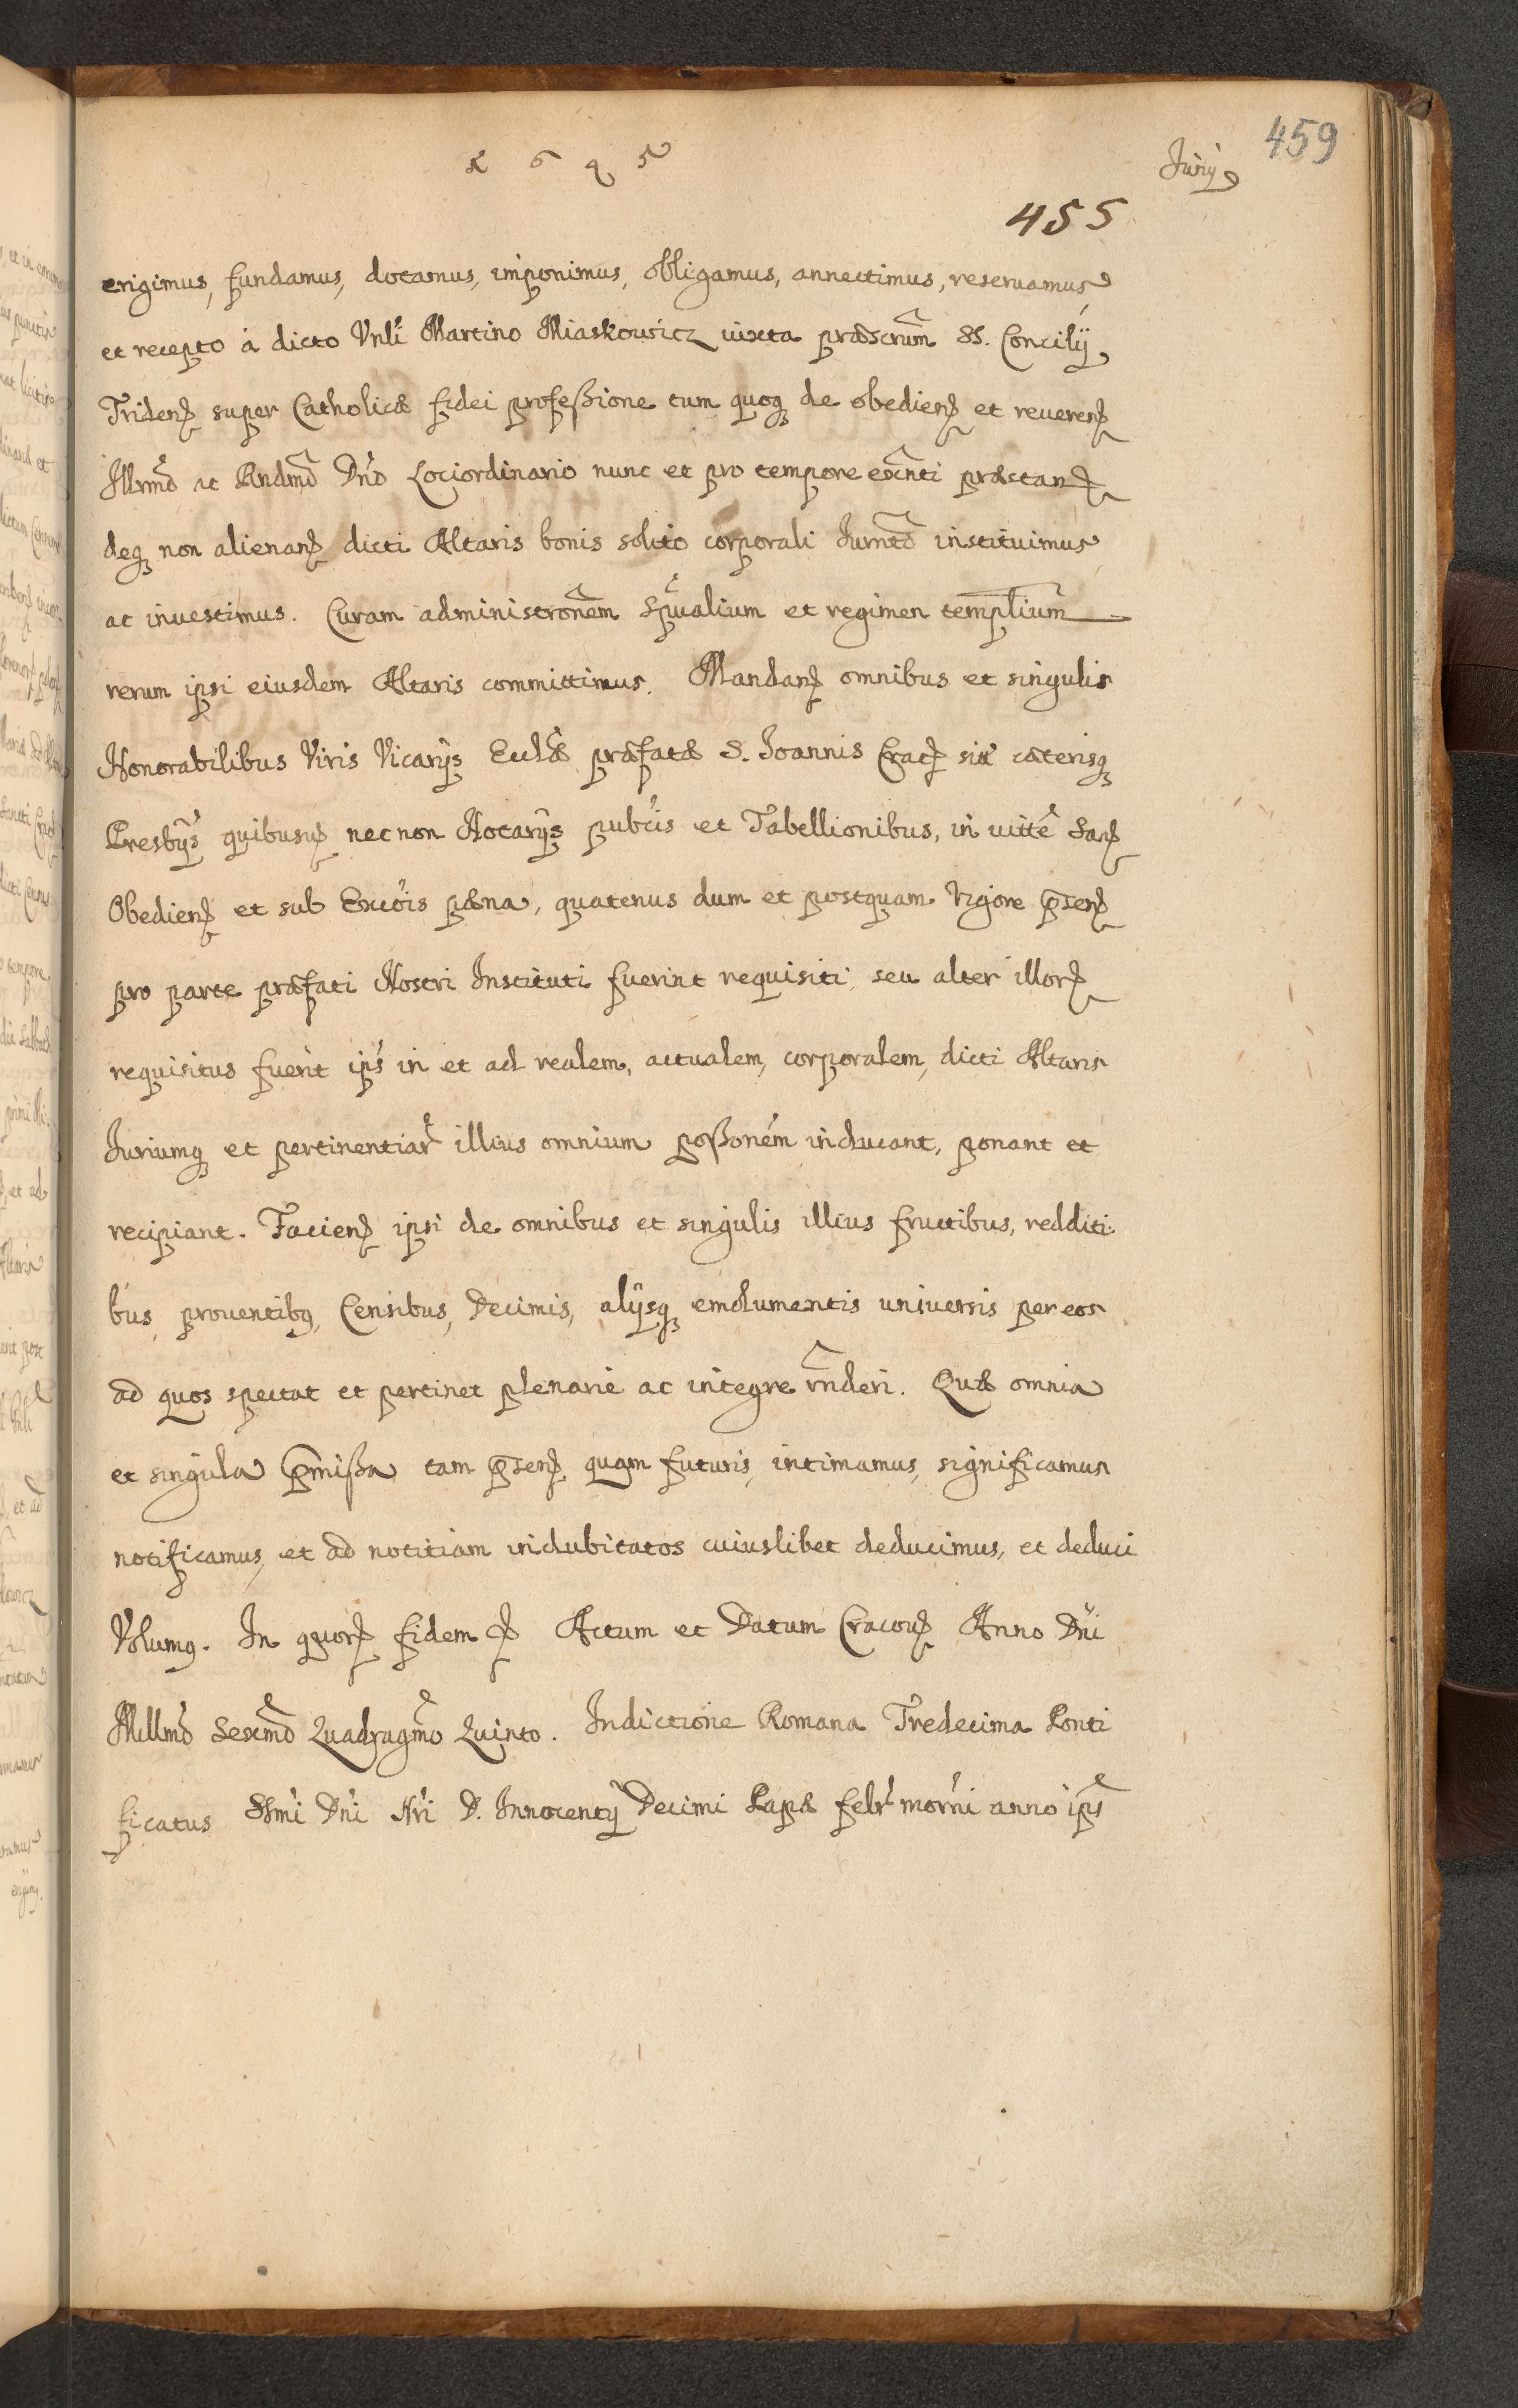 1645
Junij
459
455
erigimus, fundamus, dotamus, imponimus, obligamus, annectimus, reseruamus,
et recepto à dicto Vnli Martino Miaskowicz iuxta præscrum SS. Concilij
Tridenꝭ super Catholicæ fidei profeßione tum quoqꝫ de obedienꝭ et reuerenꝭ
Illrmo ac Rndmo Dno Lociordinario nunc et pro tempore exnti præstanꝭ
deqꝫ non alienanꝭ dicti Altaris bonis solito corporali Jurnto instituimus
ac inuestimus. Curam administronem Spualium et regimen templium
rerum ipsi eiusdem Altaris committimus. Mandanꝭ omnibus et singulis
Honorabilibus Viris Vicarijs Ecclæ præfatæ S. Joannis Cracꝭ cæterisqꝫ
Presbijs quibusuꝭ nec non Notarijs publcis et Tabellionibus, in uitte Sanꝭ
Obedienꝭ et sub Excois pæna, quatenus dum et postquam Vigore pꝛsenꝭ
pro parte præfati Nostri Instituti fuerint requisiti, seu alter illorꝭ
requisitus fuerit ips in et ad realem, actualem, corporalem, dicti Altaris
Juriumqꝫ et pertinentiar illius omnium poßonem inducant, ponant et
recipiant. Facienꝭ ipsi de omnibus et singulis illius fructibus, redditi-
bus, prouentibꝯ, Censibus, Decimis, alijsqꝫ emolumentis uniuersis per eos
ad quos spectat et pertinet plenarie ac integre rnderi. Quæ omnia
et singula pmißa tam psenꝭ quam futuris, intimamus, significamus
notificamus, et ad notitiam indubitatos cuiuslibet deducimus, et deduci
Volumꝯ. In quorꝭ fidem ꝭ Actum et Datum Cracouꝭ Anno Dni
Millmo Sexmo Quadragmo Quinto. Indictione Romana Tredecima Ponti
ficatus SSmi Dni Nri D. Innocentij Decimi Papæ felr morni anno ips